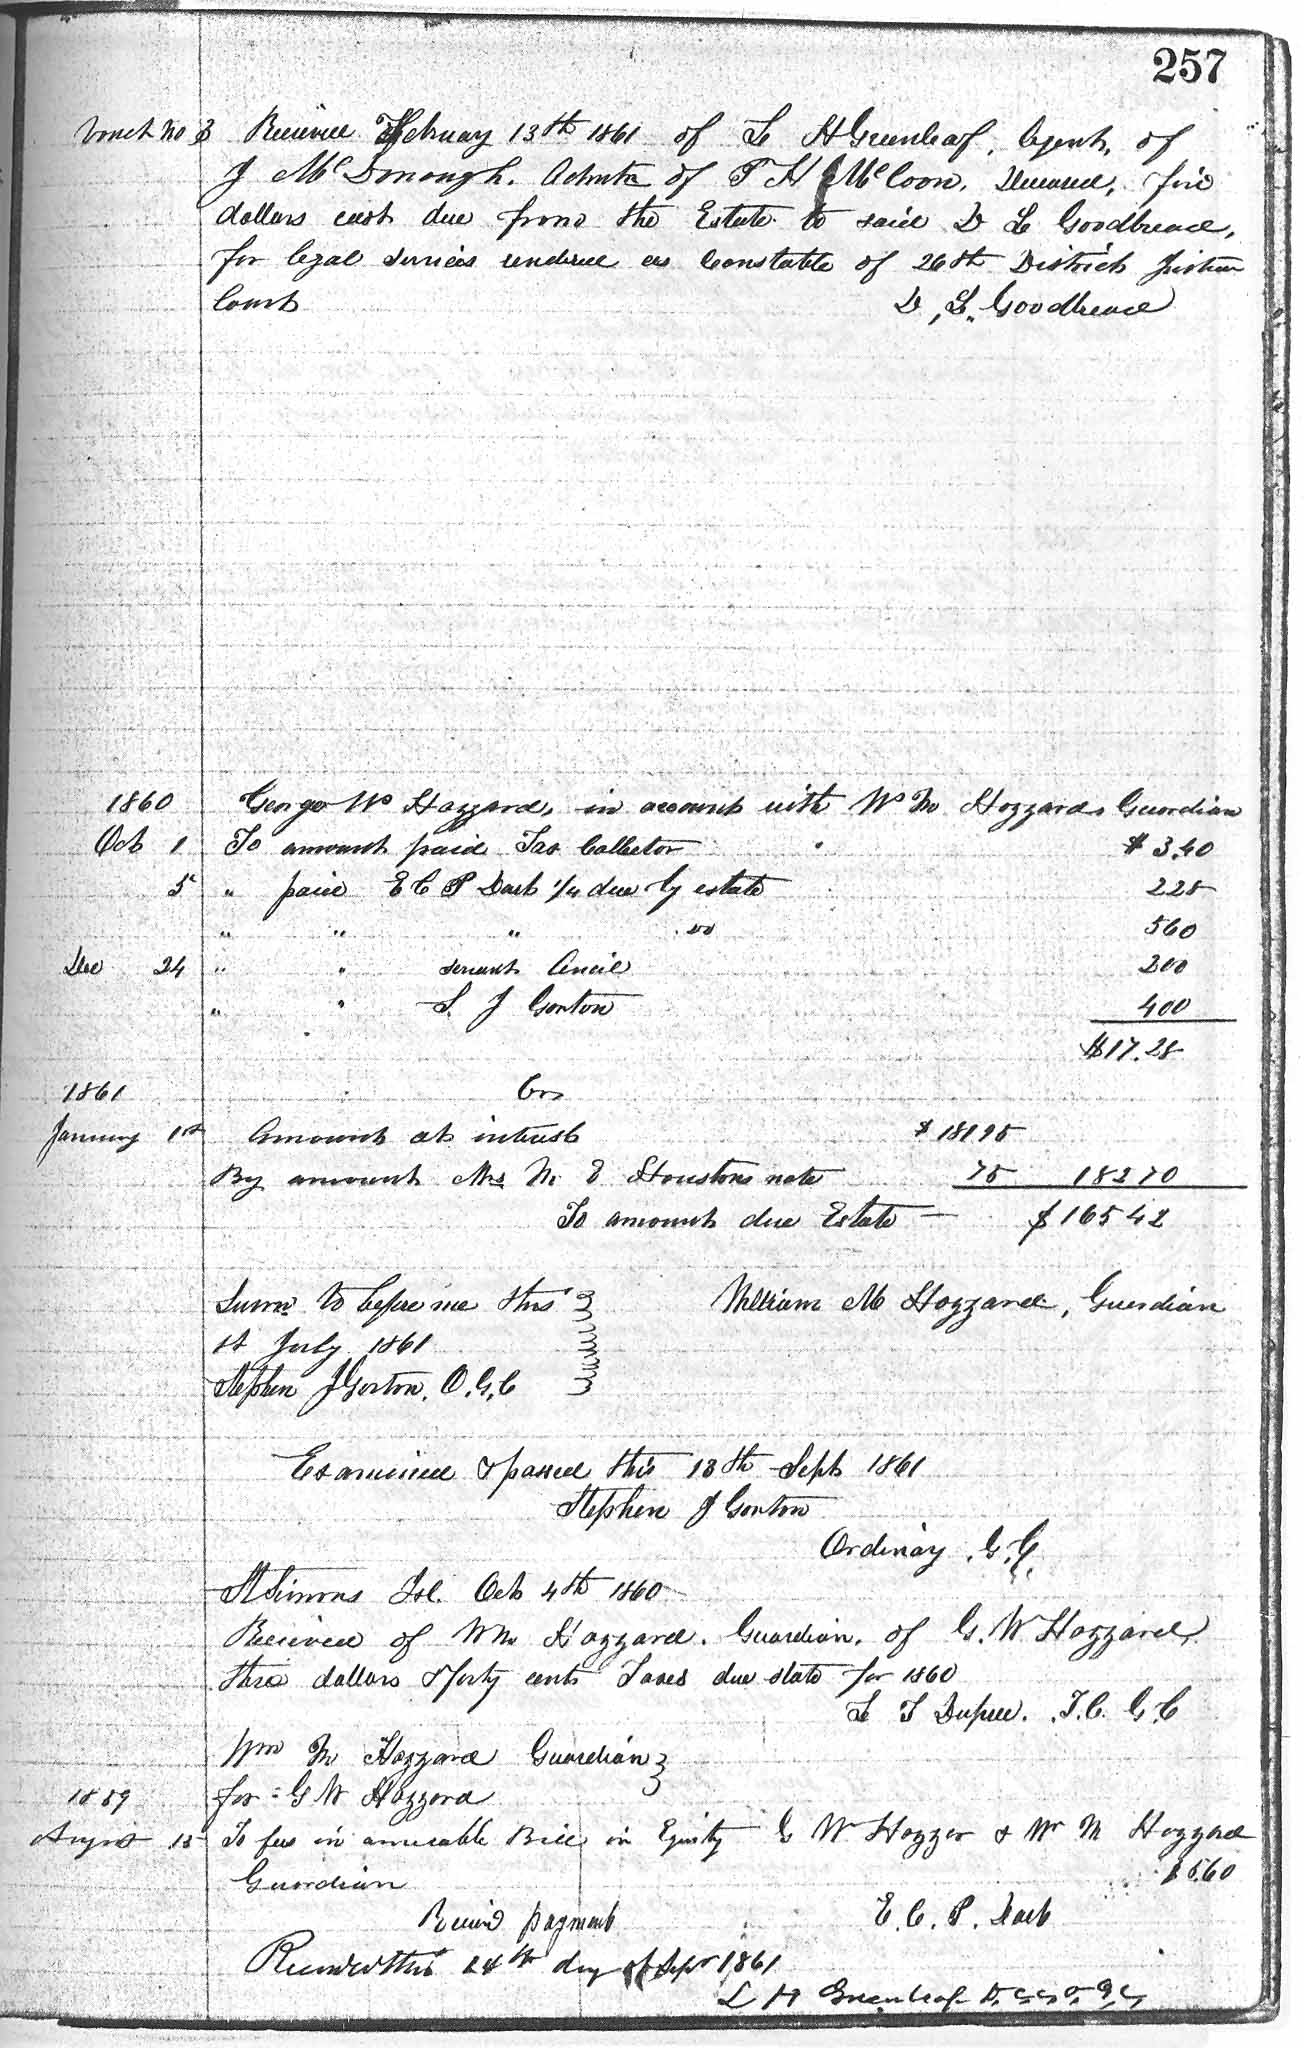 257
Vouch No 3 Received February 13th 1861 of L H Greenleaf, Agent, of
J McDonough. Admtr of P H McCoon, Deceased, five
dollars cost due from the Estate to said D L Goodbread,
for legal services rendered as Constable of 26th District Justice
Court D, L, Goodbread
1860 George W Hazzard, in account with W M Hazzard Guardian
Oct 1 To amount paid Tax Collector $ 3.40
5 " paid E C P Dart 1/4 due by estate 228
" " " do 560
Dec 24 " " servant 200
" " S. J Gorton 400
$17.28
1861 Cr
January 1st Amount at interest $ 18195
By amount Mrs M E Houstons note 75 18270
To amount due Estate — $ 16542
Sworn to before me this William M Hazzard, Guardian
1st July 1861
Stephen J Gorton. O. G. C
Examined & passed this 18th Sept 1861
Stephen J Gorton
Ordinary G. C.
St Simons Isl. Oct 4th 1860
Received of Wm Hazzard. Guardian. of G. W Hazzard,
three dollars & forty cents Taxes due state for 1860
L T Dupree. T. C. G. C
Wm M Hazzard Guardian
1859 for G W Hazzard
August 15 To fees in amicable Bill in Equity G W Hazzar & Wm M Hazzard
Guardian $ 5.60
Receivd payment E. C. P. Dart
Recorded this 24th day of Sept 1861
L H Greenleaf D. C. C. O. G. C.